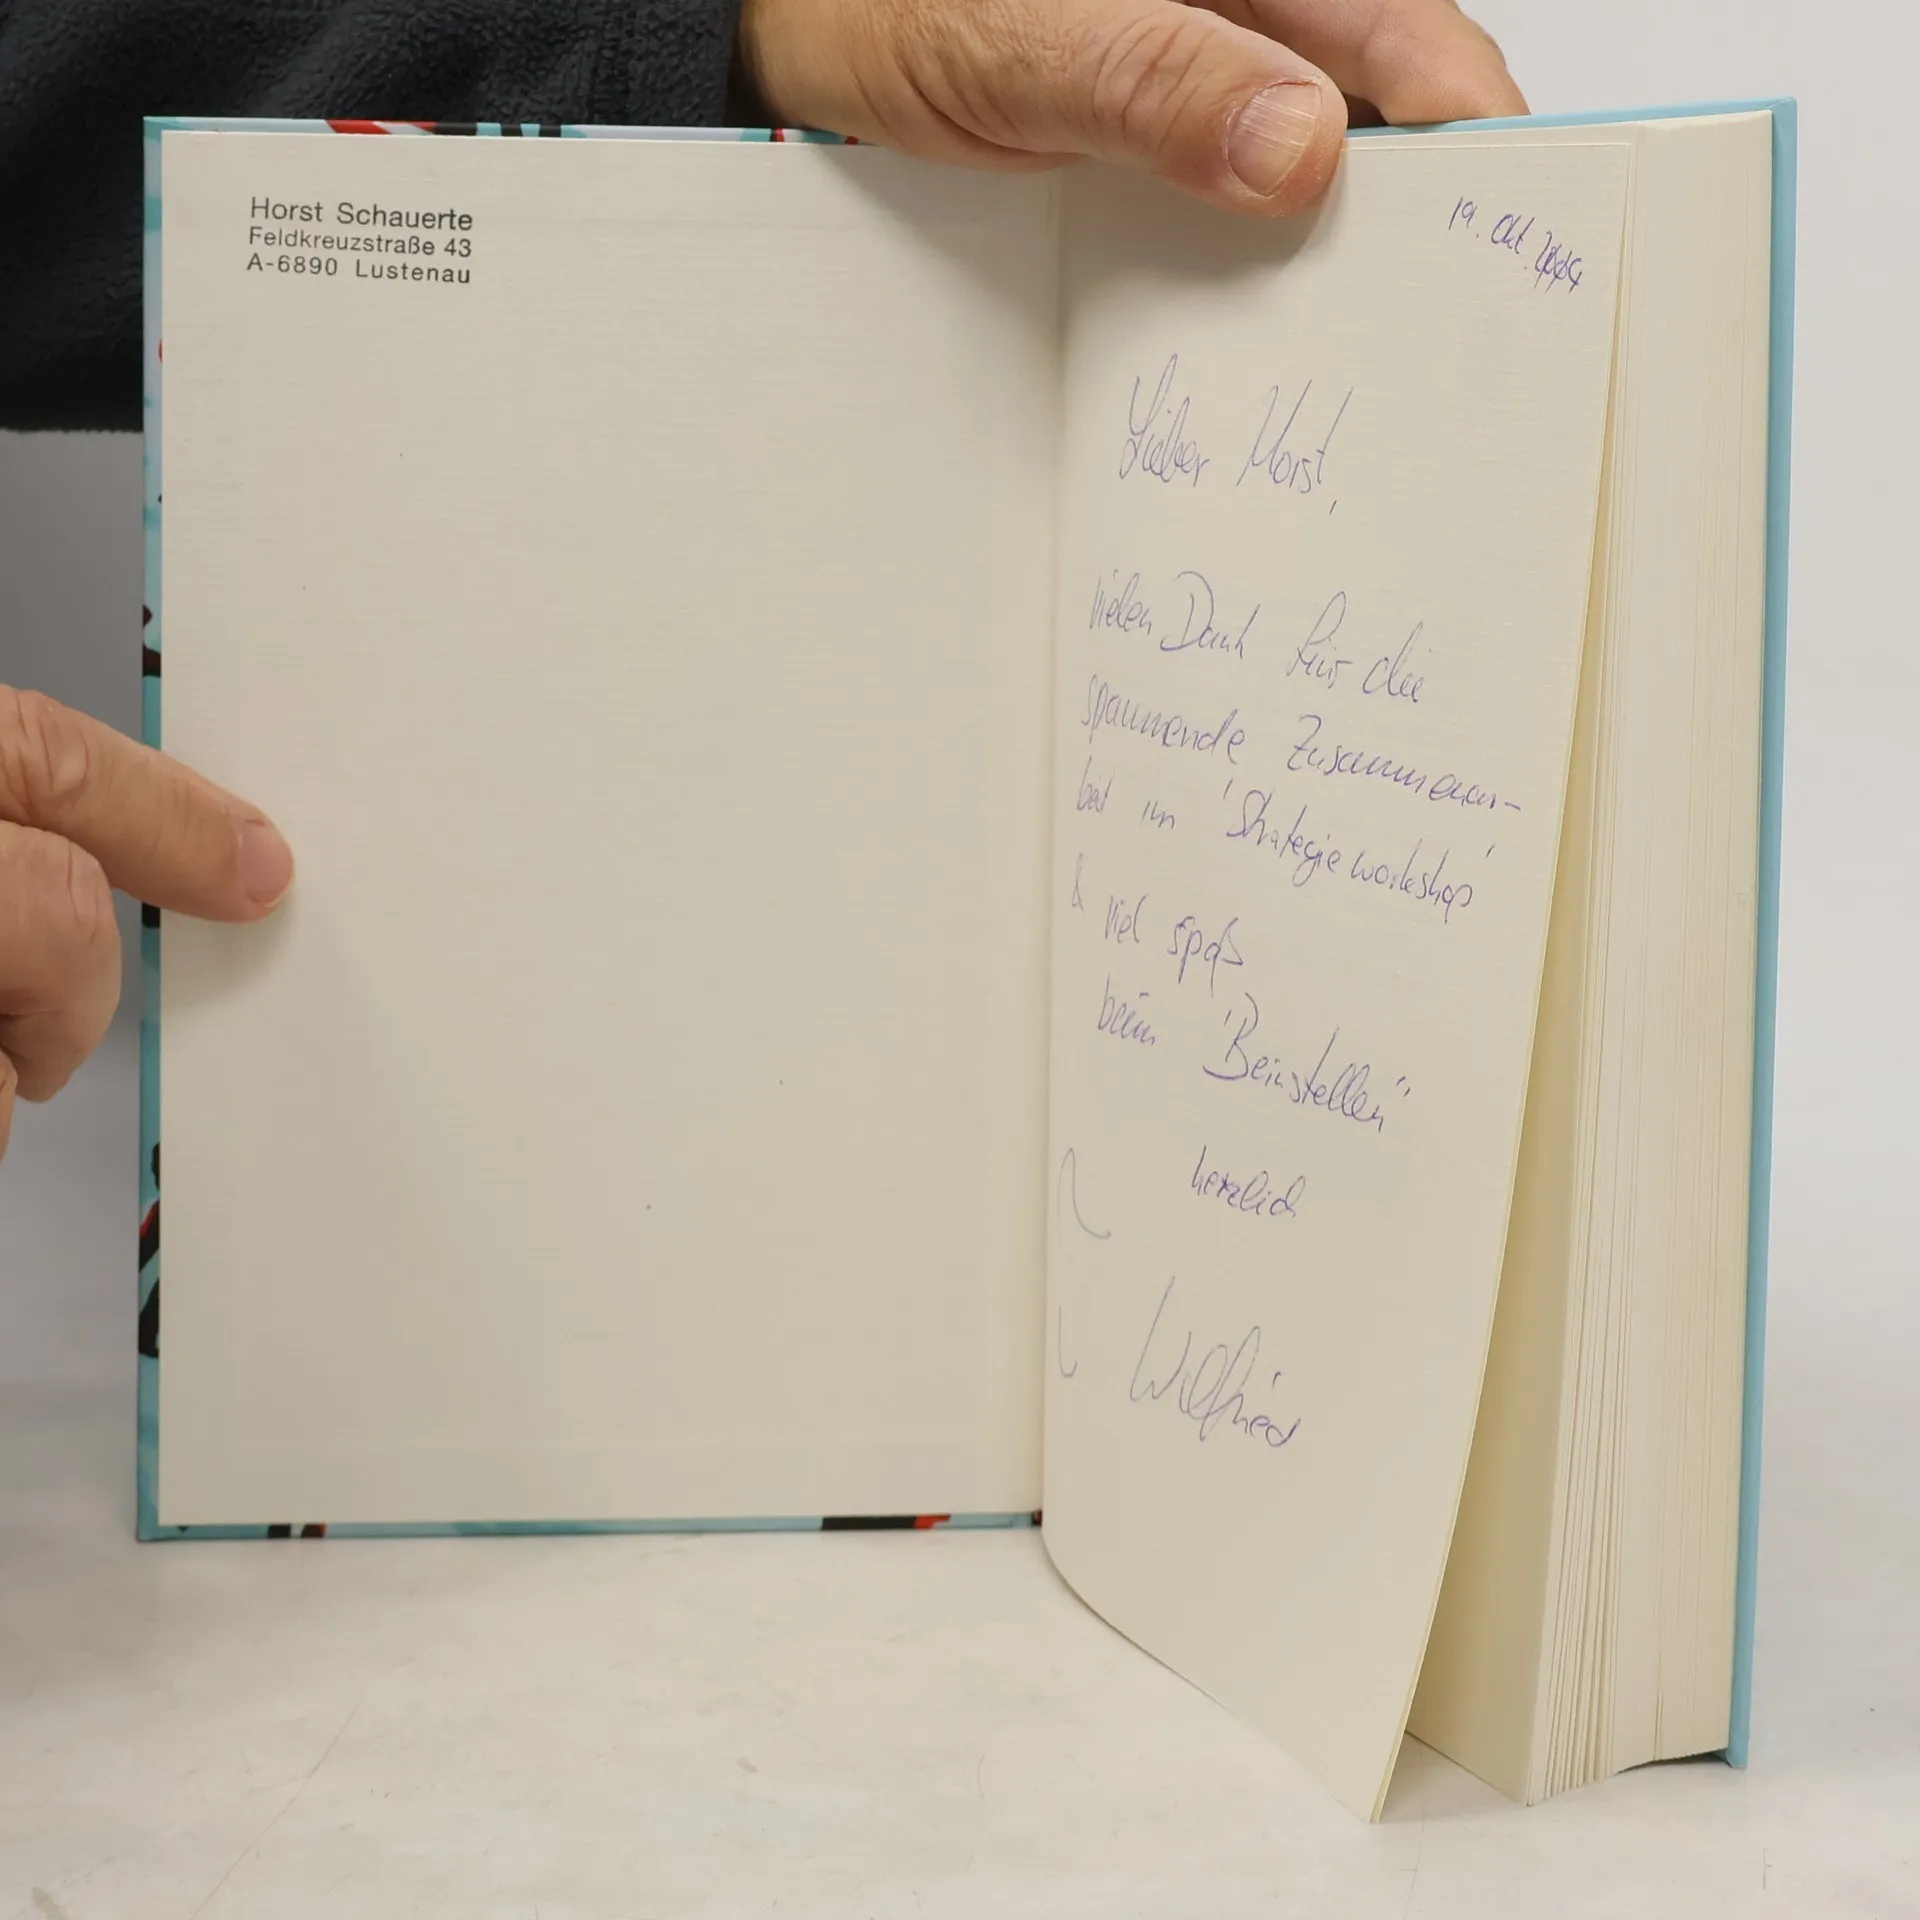 Horst Schauerte
Feldkreuzstraße 43
A-6890 Lustenau
19. Okt.
Lieber Horst,
vielen Dank für die
spannende Zusammenar-
beit im 'Strategieworkshop'
& viel spaß
beim 'Beinstellen"
herzlich
Wilfried